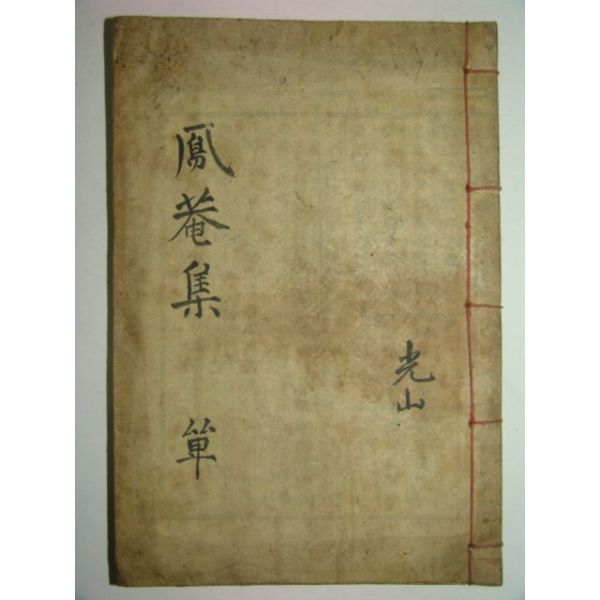 鳳菴集 單
光山